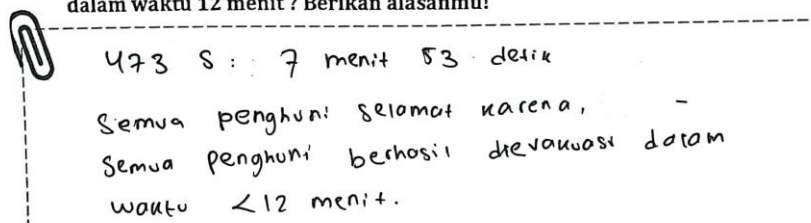 dalam waktu 12 menit? Berikan alasanmu!
473 S : 7 menit 53 detik
Semua penghuni selamat karena,
Semua penghuni berhasil dievakuasi dalam
waktu <12 menit.